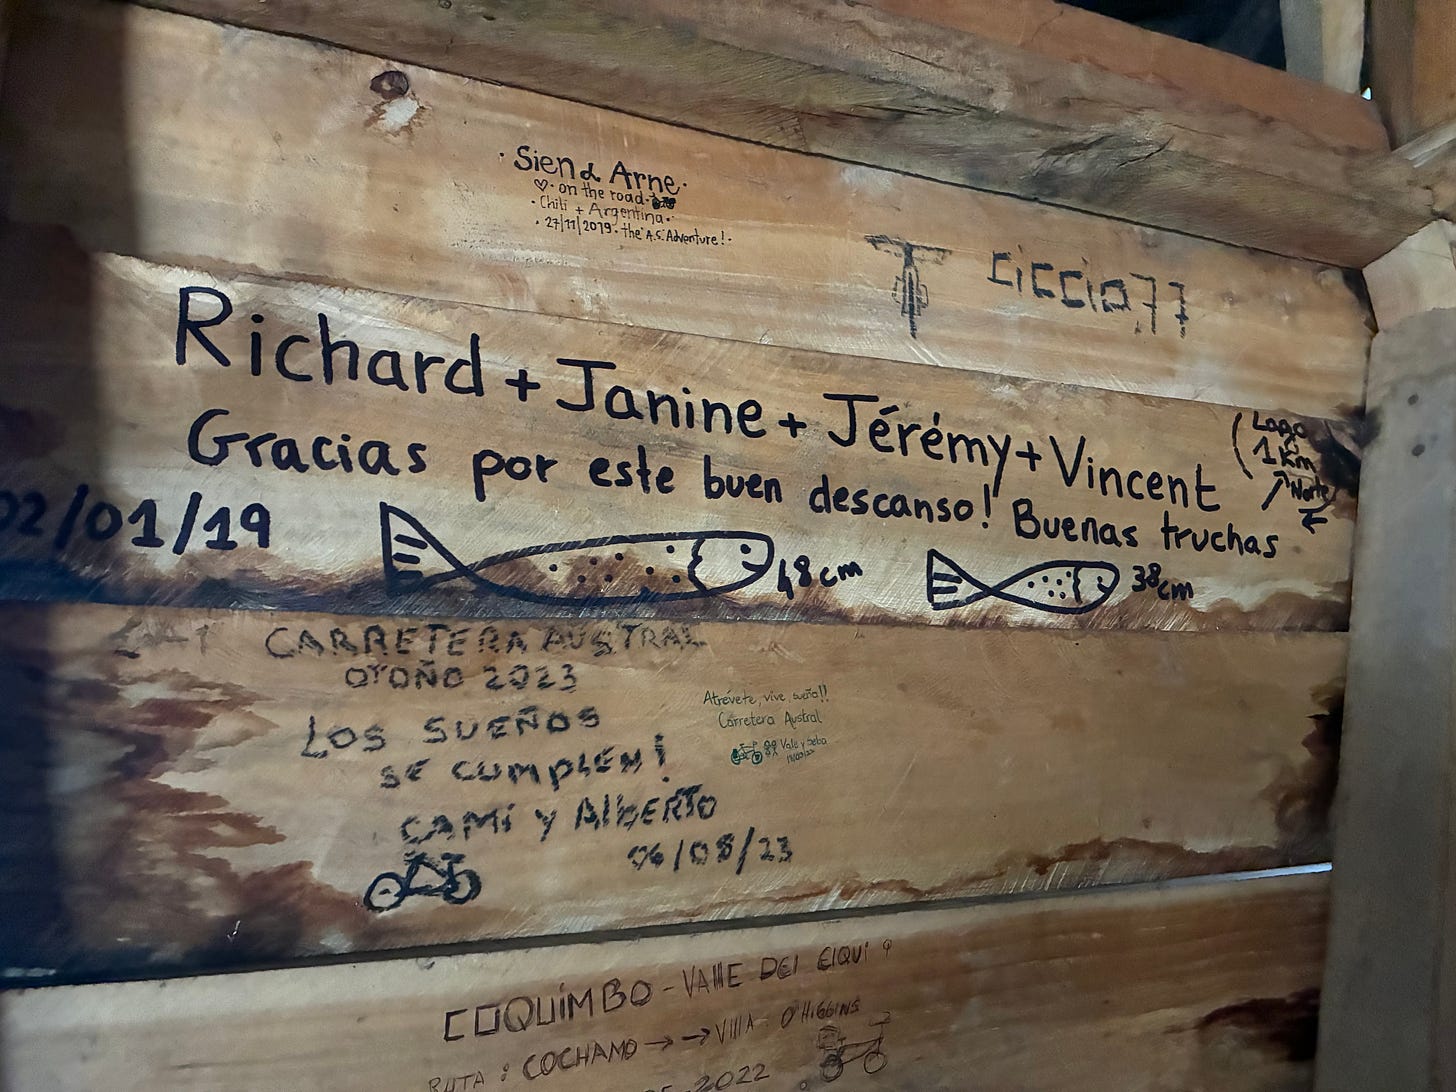 · Sien & Arne ·
♡ · on the road ·
· Chili + Argentina ·
· 27/11/2019 · the A.S. Adventure! ·
ciccio.77
Richard + Janine + Jérémy + Vincent
(Lago
1 km
Norte
Gracias por este buen descanso! Buenas truchas
02/01/19
48cm
38cm
CARRETERA AUSTRAL
OTOÑO 2023
LOS SUEÑOS
SE CUMPLEN!
CAMI Y AlbERTO
06/05/23
Atrévete, vive sueña!!
Carretera Austral
Vale y Seba
COQUIMBO - VAllE DEl ElQUI
RUTA : COCHAMO → → VIllA O'HiGGINS
2022